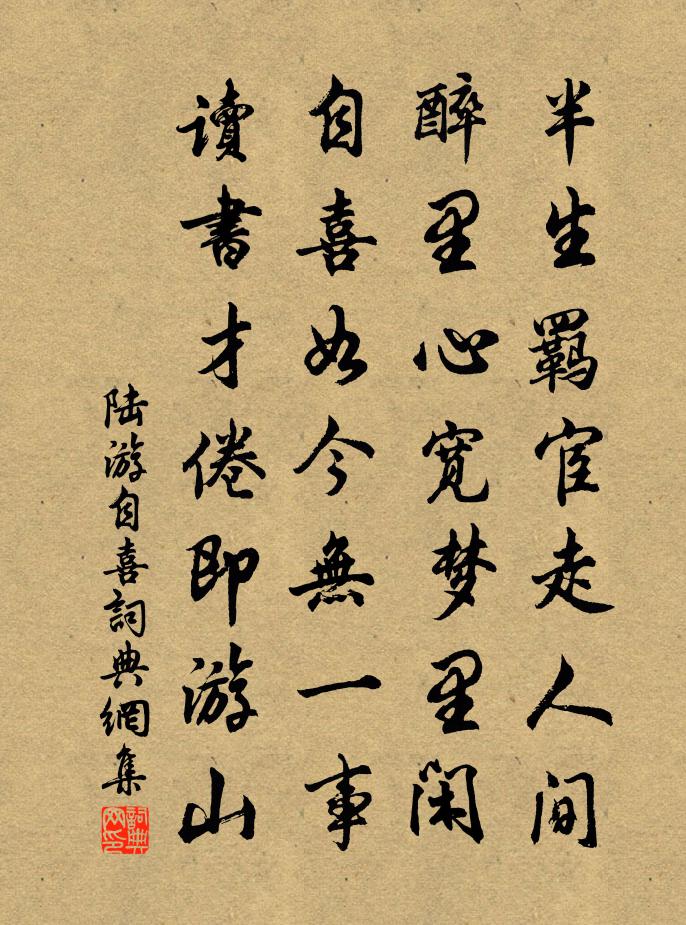 半生羈宦走人间
醉里心宽梦里闲
自喜如今無一事
讀書才倦即游山
陆游自喜詞典網集
詞典网印